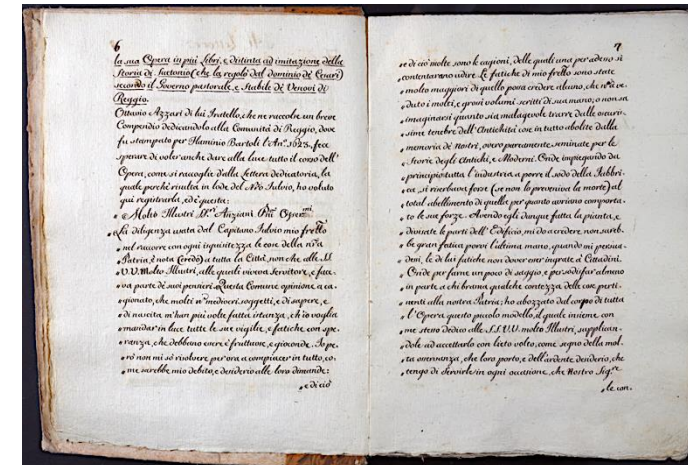 6
la sua Opera in più Libri, e distinta ad imitazione della
Storia di Suetonio (che la regolò dal dominio de' Cesari)
secondo il Governo pastorale, e stabile de' Vescovi di
Reggio.
Ottavio Azzari di lui Fratello, che ne raccolse un breve
Compendio dedicandolo alla Comunità di Reggio, dove
fu stampato per Flaminio Bartoli l'An. 1623, fece
sperare di voler anche dare alla luce tutto il corso dell'
Opera, come si raccoglie dalla Lettera dedicatoria, la
quale perchè risulta in lode del Fulvio, ho voluto
qui registrarla, ed è questa:
„ Molto Illustri Anziani
„ La diligenza usata dal Capitano Fulvio mio frello
„ nel raccorre con ogni isquisitezza le cose della nra
„ Patria, è nota (credo) a tutta la Città, non che alle SS.
„ VV. Molto Illustri, alle quali viveva Servitore, e face-
„ va parte de' suoi pensieri. Questa Comune opinione a ca-
„ gionato, che molti non mediocri soggetti, e di sapere, e
„ di nascita m'han più volte fatta istanza, ch'io voglia
„ mandar in luce tutte le sue vigilie, e fatiche con spe-
„ ranza, che debbono essere fruttuose, e gioconde. Io pe-
„ rò non mi so risolvere per ora a compiacer in tutto, co-
„ me sarebbe mio debito, e desiderio alle loro dimande:
„ e di ciò
7
„ e di ciò molte sono le cagioni, delle quali una per adesso si
„ contenteranno udire. Le fatiche di mio frello sono state
„ molto maggiori di quello possa credere alcuno, che non à ve-
„ duto i molti, e grossi volumi scritti di sua mano; o non sa
„ imaginarsi quanto sia malagevole trarre dalle oscuris-
„ sime tenebre dell'Antichità cose in tutto abolite dalla
„ memoria de' nostri, overo parcamente seminate per le
„ Storie degli Antichi, e Moderni. Onde impiegando da
„ principio tutta l'industria a porre il sodo della Fabbri-
„ ca, si riserbava forse (se non lo preveniva la morte) al
„ total abellimento di quella per quanto avriano comporta-
„ to le sue forze. Avendo egli dunque fatta la pianta, e
„ divisate le parti dell'Edificio, mi do a credere, non sareb-
„ be gran fatica porvi l'ultima mano, quando mi persua-
„ dessi, le di lui fatiche non dover esser ingrate a' Cittadini.
„ Onde per farne un poco di saggio, e per sodisfar almeno
„ in parte a chi brama qualche contezza delle cose perti-
„ nenti alla nostra Patria; ho abozzato dal corpo di tutta
„ l'Opera questo piccolo modello, il quale insieme con
„ me stesso dedico alle SS. VV. molto Illustri, supplican-
„ dole ad accettarlo con lieto volto, come segno della mol-
„ ta osservanza, che loro porto, e dell'ardente desiderio, che
„ tengo di servirle in ogni occasione, che Nostro Sig.re
„ le con.